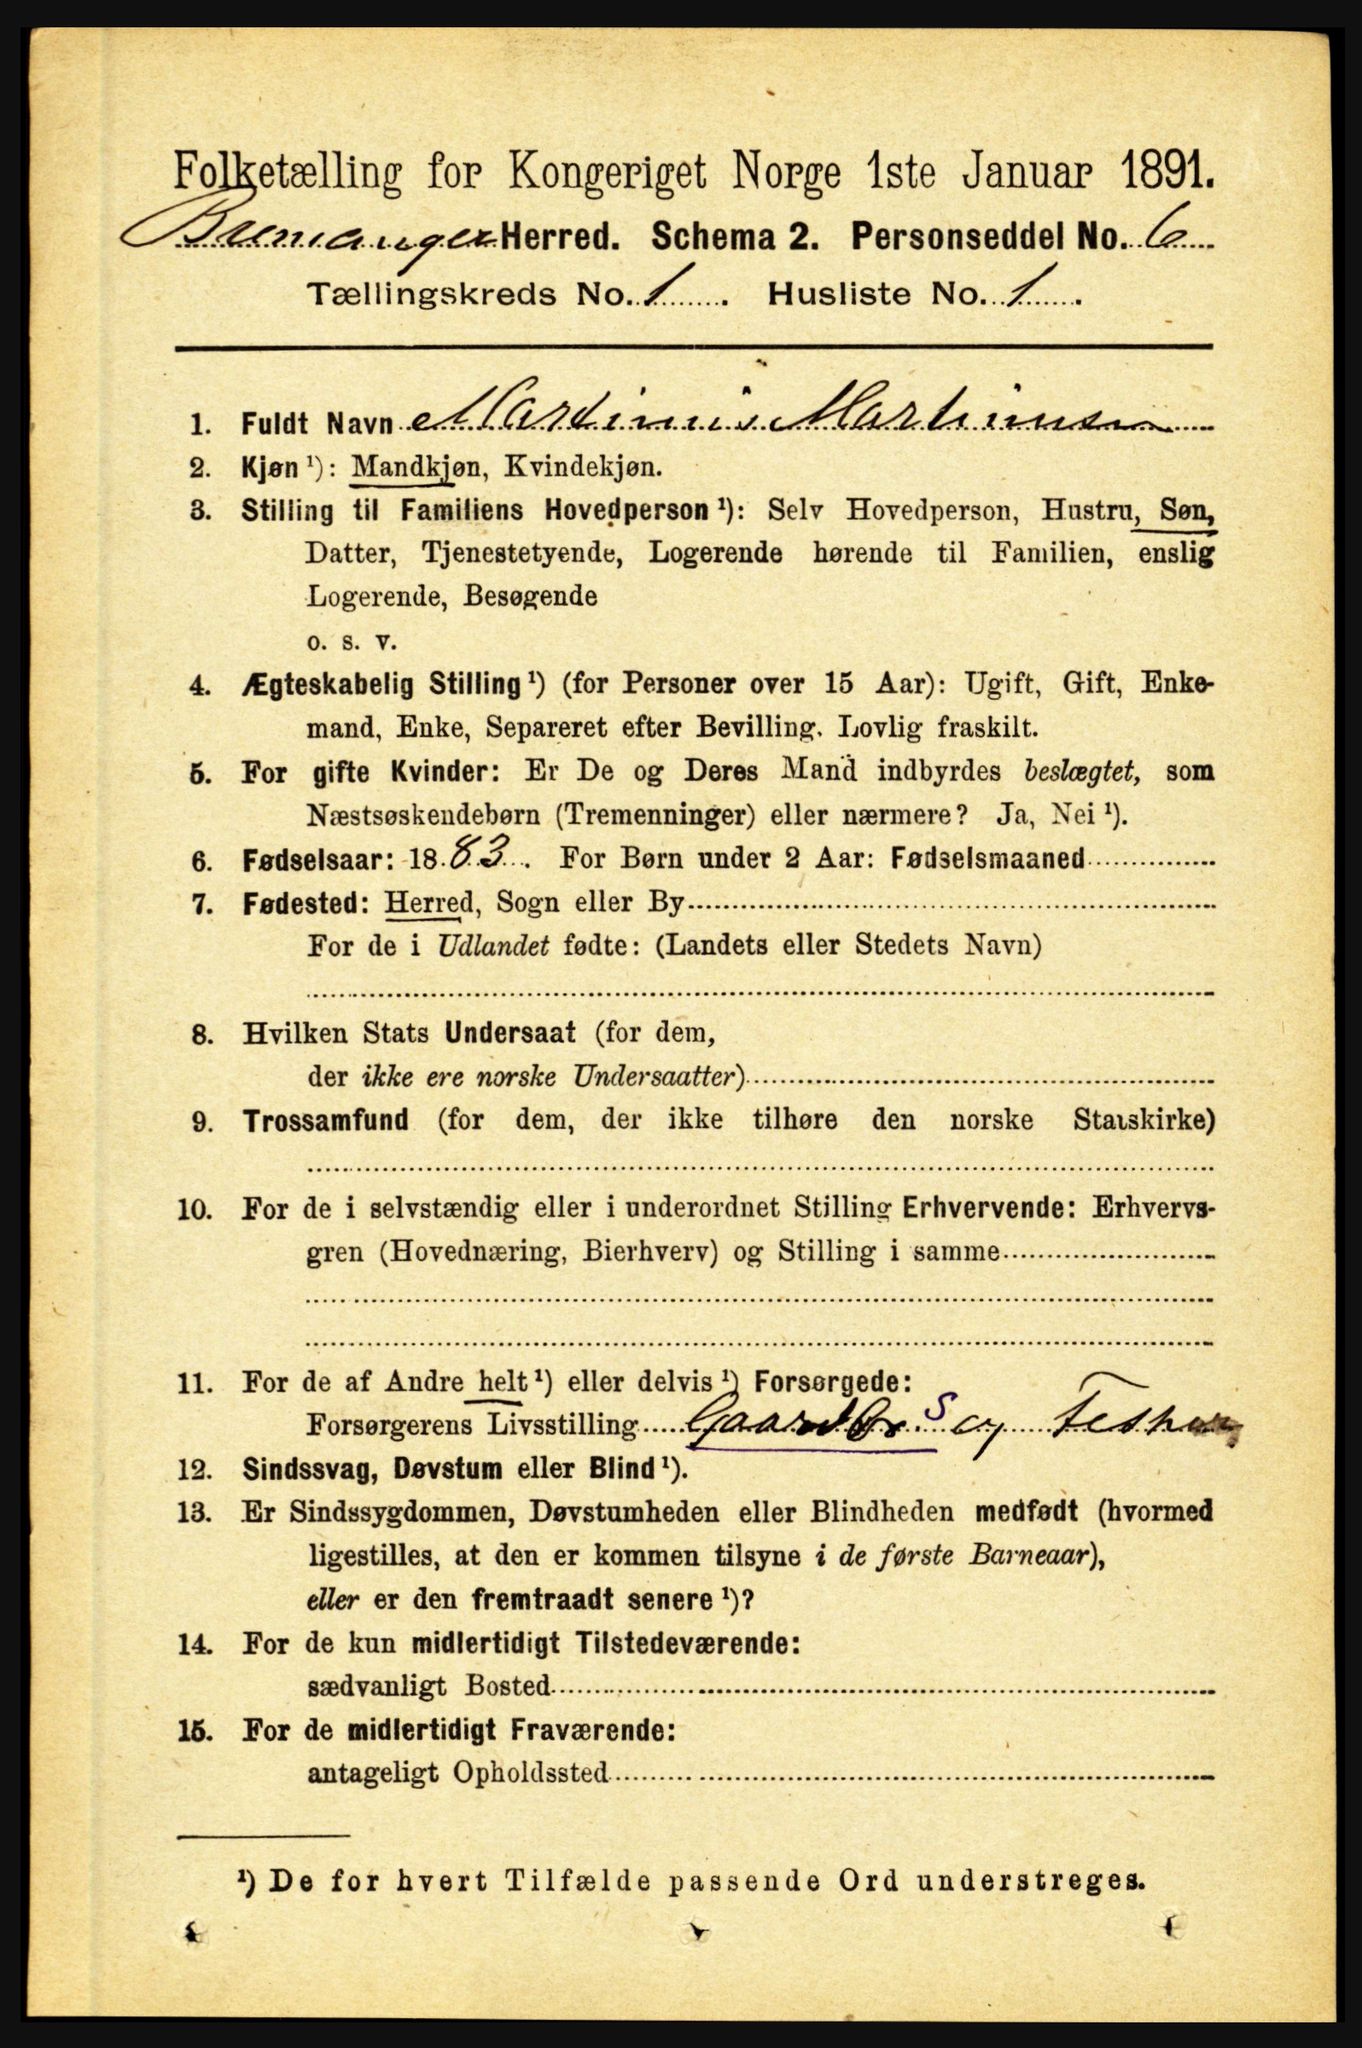 Folketælling for Kongeriget Norge 1ste Januar 1891.
Bremanger Herred. Schema 2. Personseddel No. 6
Tællingskreds No. 1. Husliste No. 1.
1. Fuldt Navn Martinus Martinusen
2. Kjøn ¹): Mandkjøn, Kvindekjøn.
3. Stilling til Familiens Hovedperson ¹): Selv Hovedperson, Hustru, Søn,
Datter, Tjenestetyende, Logerende hørende til Familien, enslig
Logerende, Besøgende
o. s. v.
4. Ægteskabelig Stilling ¹) (for Personer over 15 Aar): Ugift, Gift, Enke-
mand, Enke, Separeret efter Bevilling. Lovlig fraskilt.
5. For gifte Kvinder: Er De og Deres Mand indbyrdes beslægtet, som
Næstsøskendebørn (Tremenninger) eller nærmere? Ja, Nei ¹).
6. Fødselsaar: 1883. For Børn under 2 Aar: Fødselsmaaned
7. Fødested: Herred, Sogn eller By
For de i Udlandet fødte: (Landets eller Stedets Navn)
8. Hvilken Stats Undersaat (for dem,
der ikke ere norske Undersaatter)
9. Trossamfund (for dem, der ikke tilhøre den norske Statskirke)
10. For de i selvstændig eller i underordnet Stilling Erhvervende: Erhvervs-
gren (Hovednæring, Bierhverv) og Stilling i samme
11. For de af Andre helt ¹) eller delvis ¹) Forsørgede:
Forsørgerens Livsstilling Gaardbr S og Fisker
12. Sindssvag, Døvstum eller Blind ¹).
13. Er Sindssygdommen, Døvstumheden eller Blindheden medfødt (hvormed
ligestilles, at den er kommen tilsyne i de første Barneaar),
eller er den fremtraadt senere ¹)?
14. For de kun midlertidigt Tilstedeværende:
sædvanligt Bosted
15. For de midlertidigt Fraværende:
antageligt Opholdssted
¹) De for hvert Tilfælde passende Ord understreges.